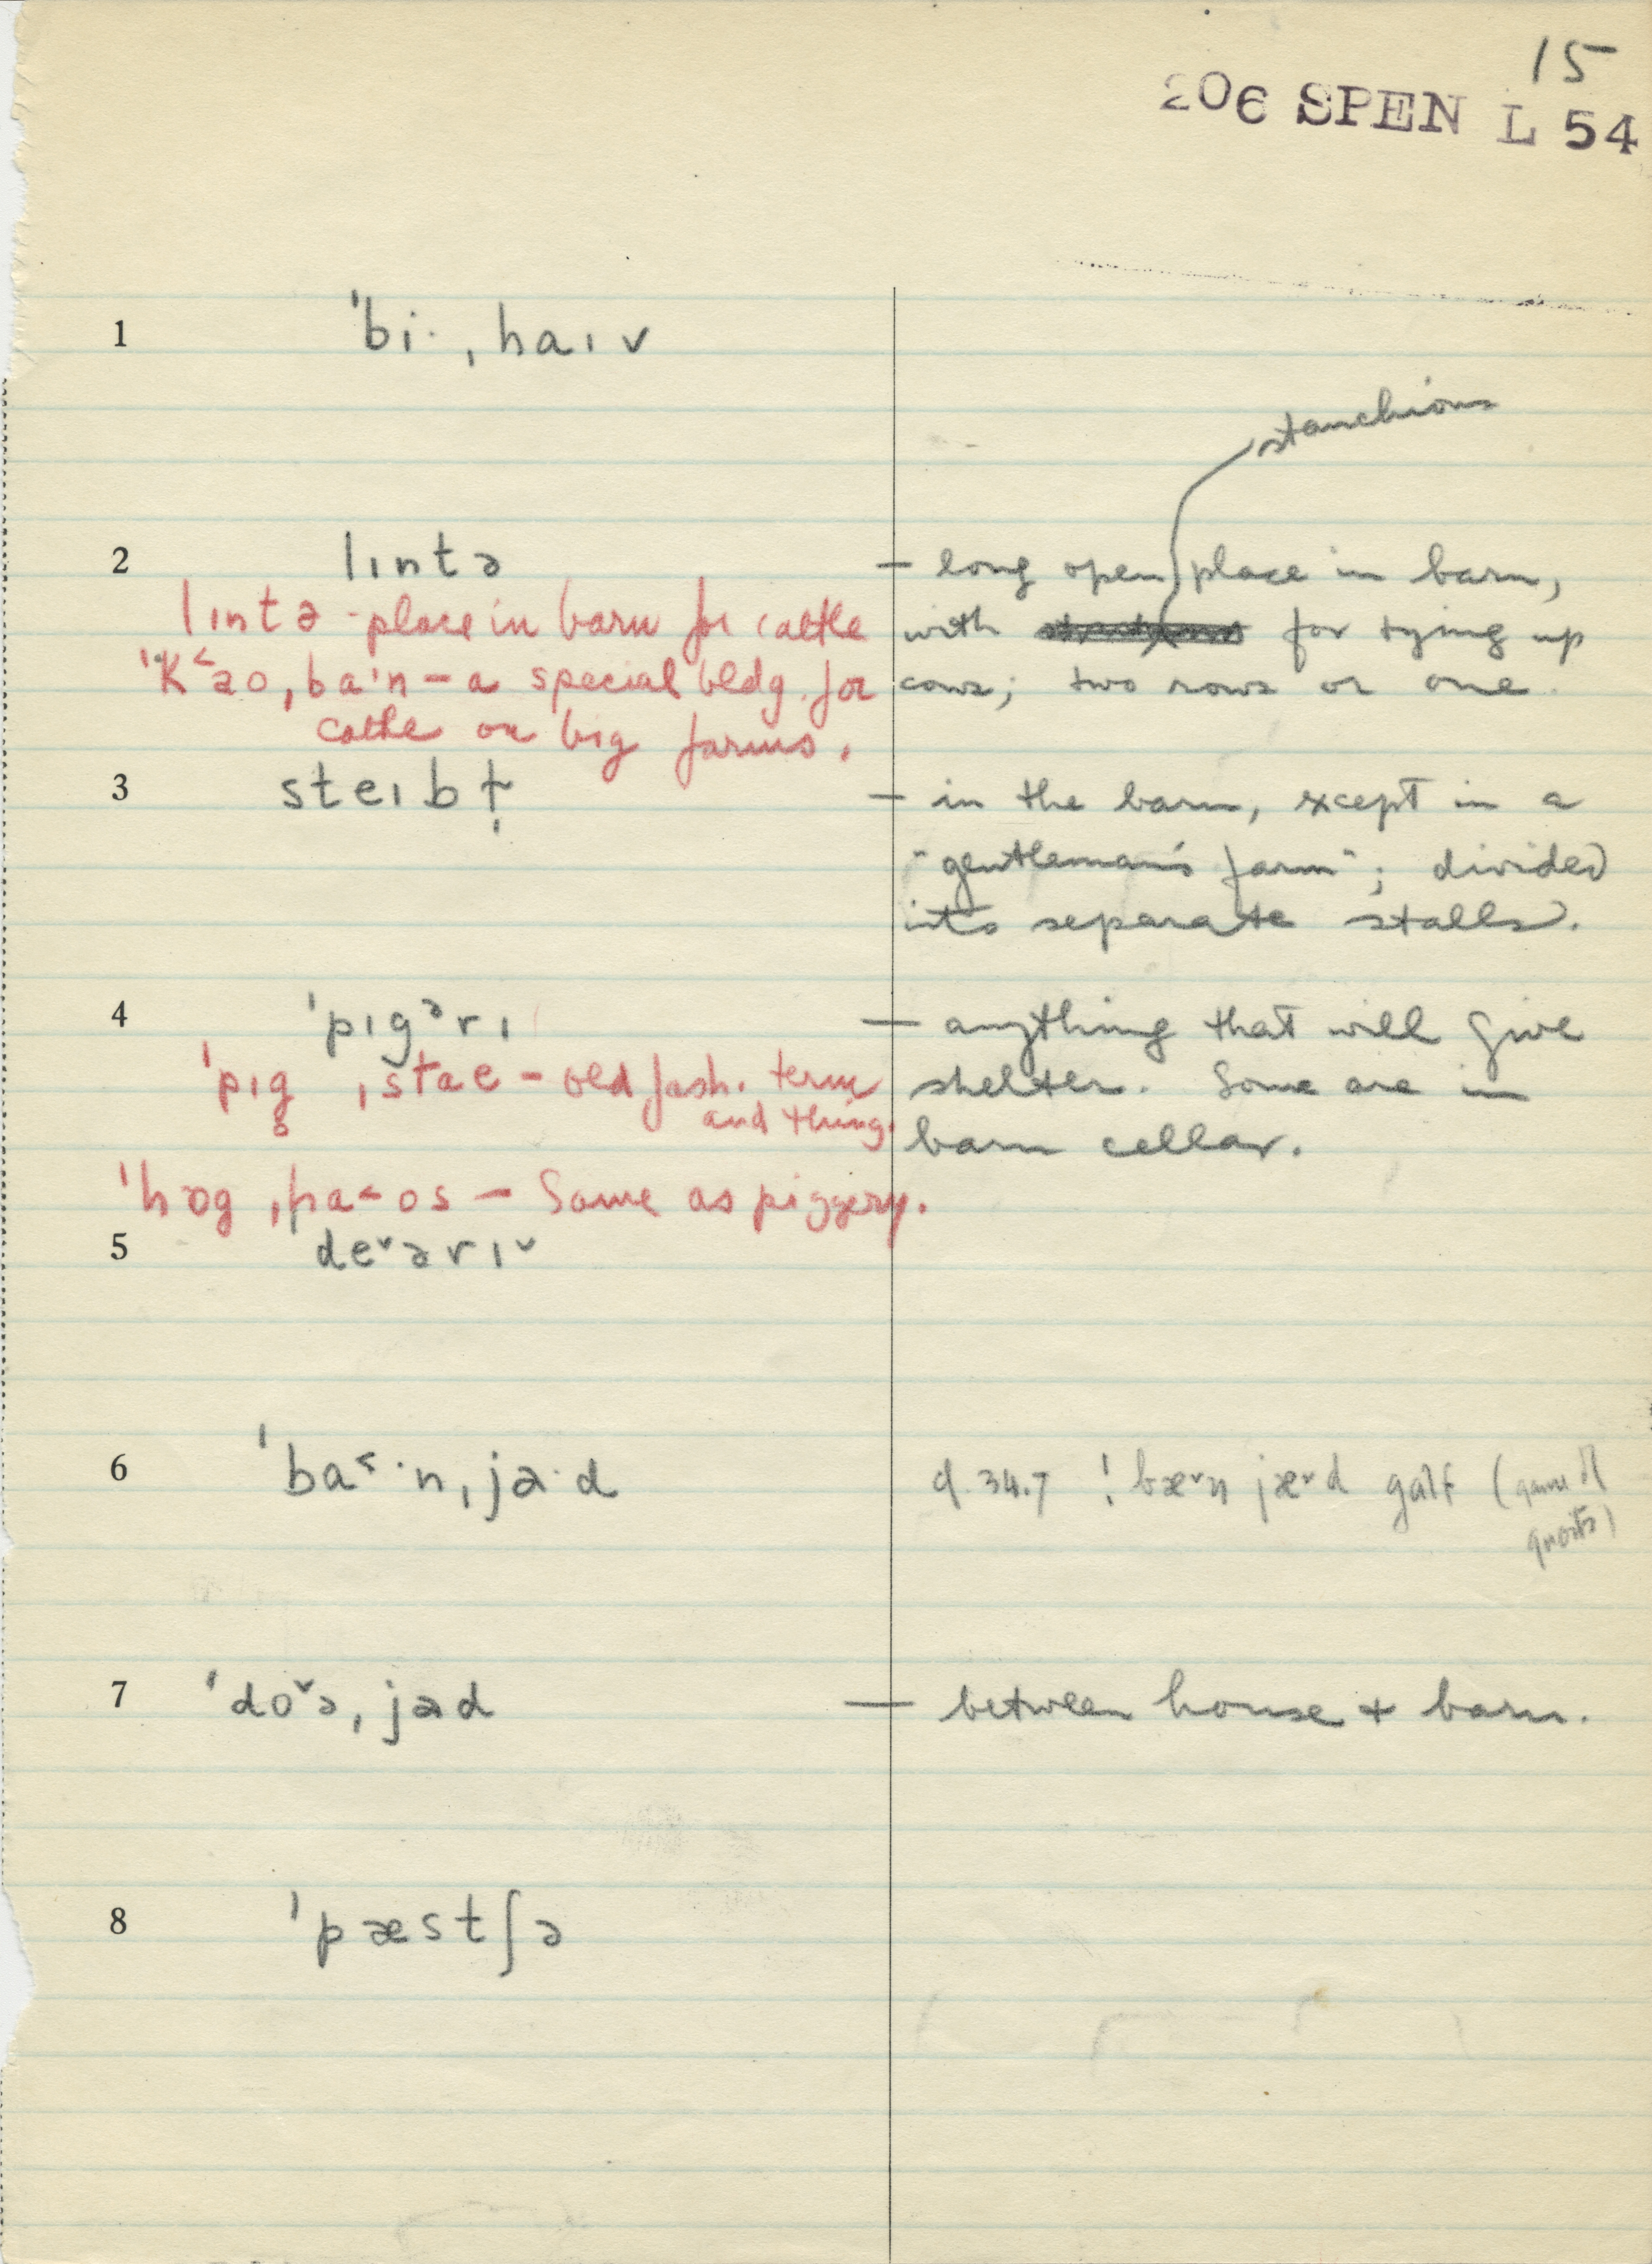 15
206 SPEN L 54
1 ˈbi· ˌhaɪv
stanchions
2 lɪntə — long open place in barn,
lɪntə - place in barn for cattle
with for tying up
ˈk˂ao ˌba·n — a special bldg. for
cows; two rows or one.
cattle on big farms.
3 steɪbɫ̩ — in the barn, except in a
"gentleman's farm"; divided
into separate stalls.
4 ˈpɪgᵊrɪ — anything that will give
ˈpɪg̥ ˌstae — old fash. term
and thing.
shelter. Some are in
barn cellar.
ˈhɒg ˌha˂os — Same as piggery.
5 de˅ərɪ˅
6 ˈba˂·n ˌja·d
cf. 34.7 ! bæ˅n jæ˅d galf (game of
quoits)
7 ˈdo˅ə ˌjad — between house + barn.
8 ˈpæstʃə